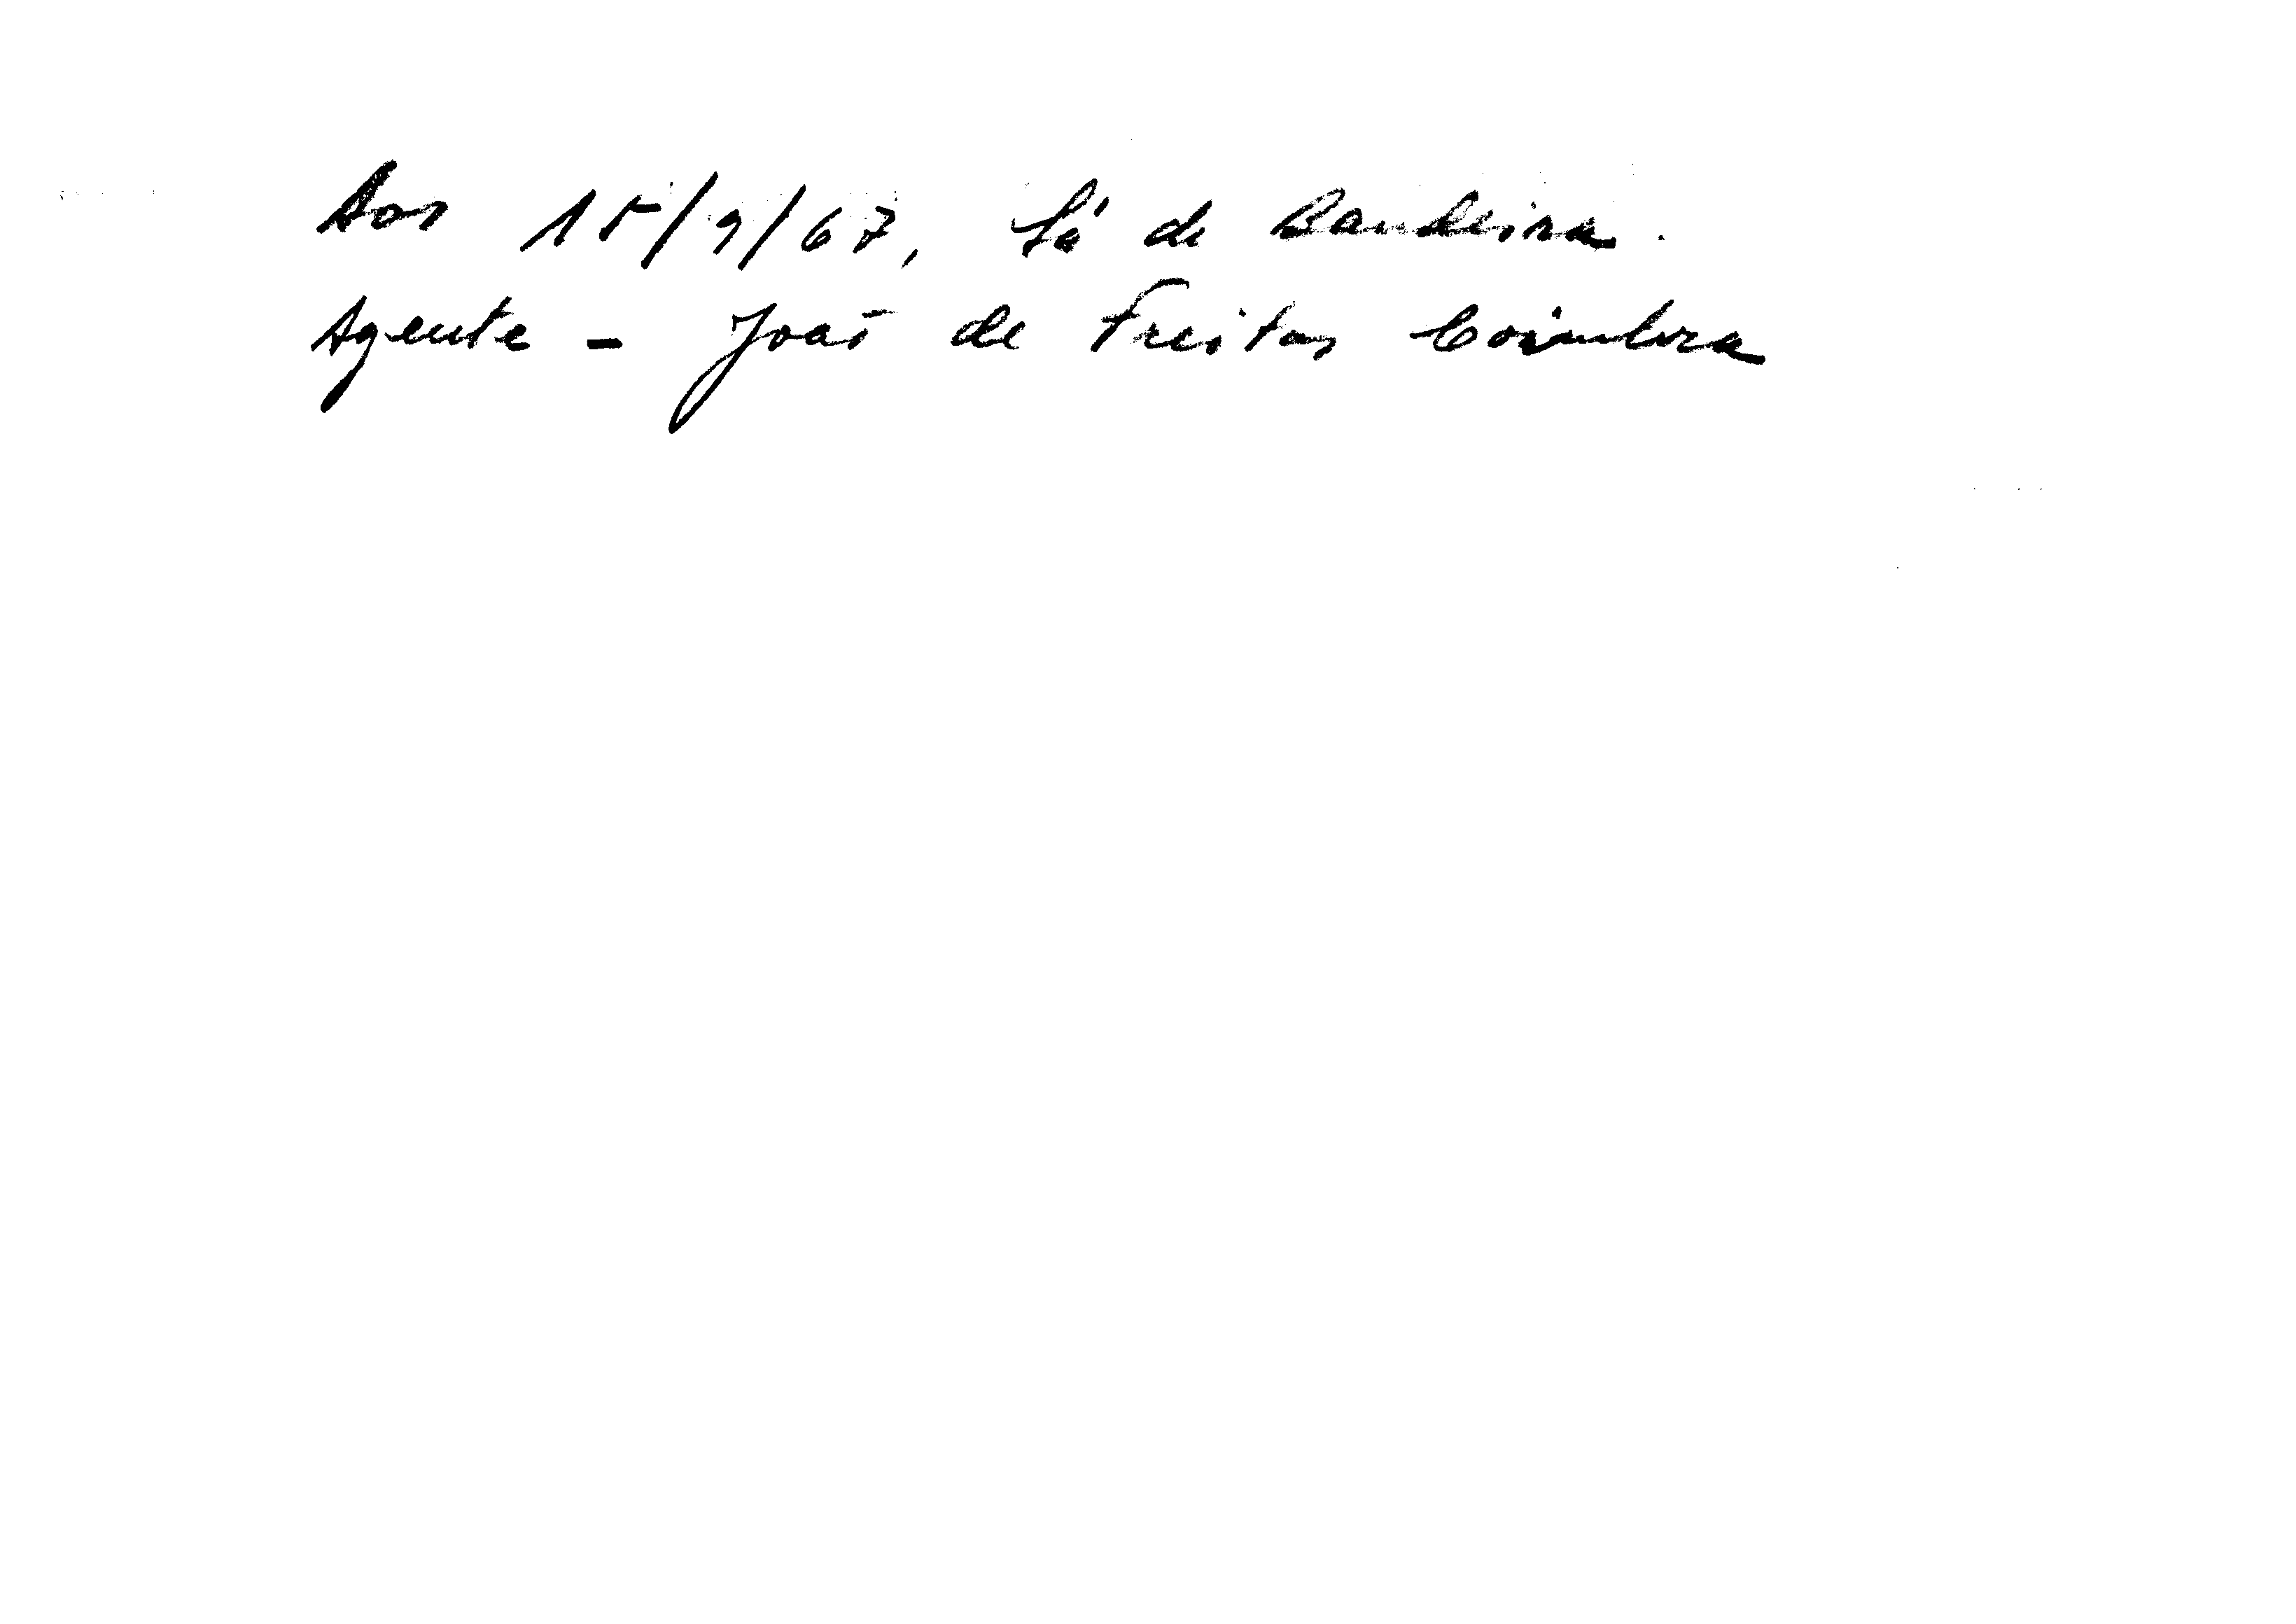 Aos 15/9/67, Sá de Bandeira.
Agente - João de Freitas Coimbra